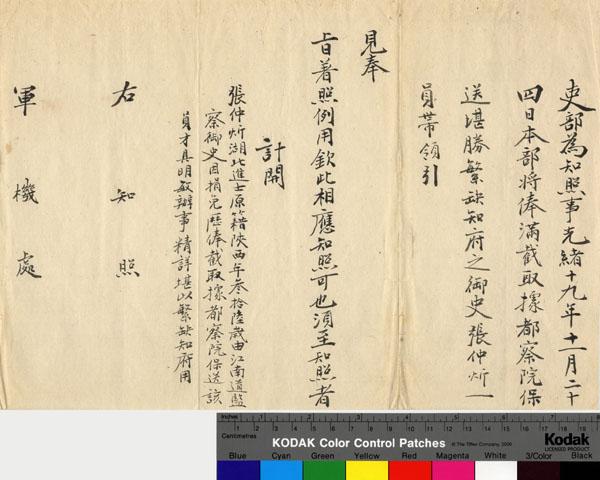 吏部為知照事光緒十九年十一月二十
四日本部將俸滿截取據都察院保
送堪勝繁缺知府之御史張仲炘一
員帶領引
見奉
旨著照例用欽此相應知照可也須至知照者
計開
張仲炘湖北進士原籍陝西年叁拾陸歲由江南道監
察御史因捐免歷俸截取據都察院保送該
員才具明敏辦事精詳堪以繁缺知府用
右知照
軍機處
Inches
Centimetres
KODAK Color Control Patches
© The Tiffen Company, 2000
Kodak
LICENSED PRODUCT
Blue Cyan Green Yellow Red Magenta White 3/Color Black